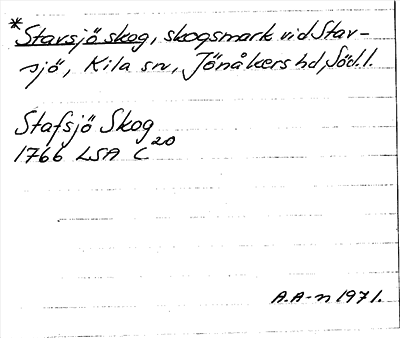 *Stavsjö skog, skogsmark vid Stav-
sjö, Kila sn, Jönåkers hd, Söd.l.
Stafsjö Skog
1766 LSA C20
A.A-n 1971.